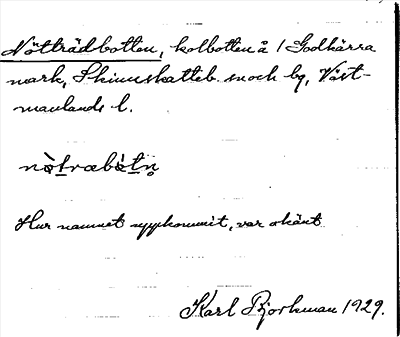 Nötträdbotten, kolbotten å 1 Godkärra
mark, Skinnskatteb. snoch by, Väst-
manlands l.
nò̱trabò̱tn̥
Hur namnet uppkommit, var okänt
Karl Björkman 1929.